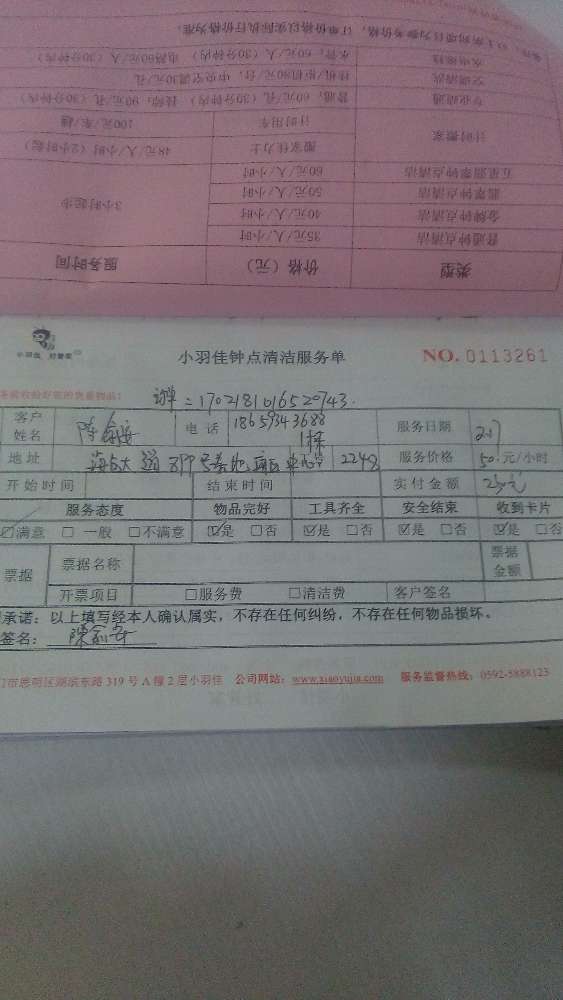 备注：以上所列项目为参考价格，订单价格以实际执行价格为准。
水电维修 水管：60元/人（30分钟内） 电路60元/人（30分钟内）
空调清洗 挂机/柜机90元/台，中央空调30元/孔
专业疏通 普通：60元/孔（30分钟内） 90元/孔（30分钟）
计时搬家 计时用车 100元/车/趟
搬家佳力士 48元/人/小时（2小时起）
五星翡翠钟点清洁 60元/人/小时
翡翠钟点清洁 50元/人/小时
金牌钟点清洁 40元/人/小时
普通钟点清洁 35元/人/小时 3小时起步
类型 价格（元） 服务时间
小羽佳 好管家
小羽佳钟点清洁服务单 NO. 0113261
您的贵重物品：
订单：1702181016520743.
客户姓名 陈 电话 18659343688 服务日期
地址 1栋 224 服务价格 50 元/小时
开始时间 结束时间 实付金额
服务态度 物品完好 工具齐全 安全结束 收到卡片
☑满意 □一般 □不满意 ☑是 □否 ☑是 □否 ☑是 □否 ☑是 □否
票据 票据名称 票据金额
开票项目 □服务费 □清洁费 客户签名
承诺：以上填写经本人确认属实，不存在任何纠纷，不存在任何物品损坏。
签名： 陳
门市思明区湖滨东路 319 号 A 幢 2 层小羽佳 公司网站：www.xiaoyujia.com 服务监督热线：0592-5888123